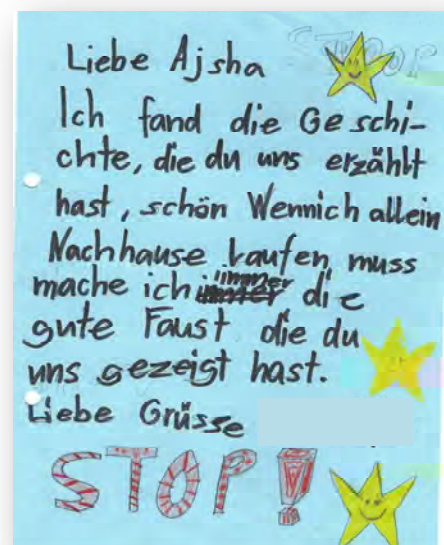 Liebe Ajsha
Ich fand die Geschi-
chte, die du uns erzählt
hast, schön Wennich allein
Nachhause Laufen muss
mache ich immer die
gute Faust die du
uns gezeigt hast.
Liebe Grüsse
STOP!